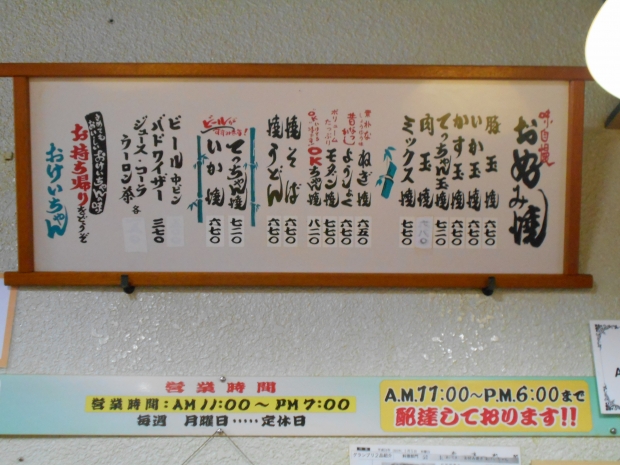 味自慢
お好み焼
豚玉焼 六七〇
いか玉焼 六七〇
かす玉焼 六七〇
てっちゃん玉焼 七二〇
肉玉焼 六八〇
ミックス焼 七七〇
素朴な
昔なつかし
ねぎ焼 六五〇
ようしょく焼 六七〇
ボリュームたっぷり
モダン焼 七七〇
OKちゃん焼 八二〇
焼そば 六七〇
焼うどん 六七〇
ビールが
てっちゃん焼 七二〇
いか焼 六七〇
ビール 中ビン
バドワイザー 三七〇
ジュース・コーラ
ウーロン茶 各
さめてもおいしいおけいちゃんの味
お持ち帰りをどうぞ
おけいちゃん
営業時間
営業時間:AM 11:00～PM 7:00
毎週 月曜日‥‥‥定休日
A.M.11:00～P.M.6:00まで
配達しております!!